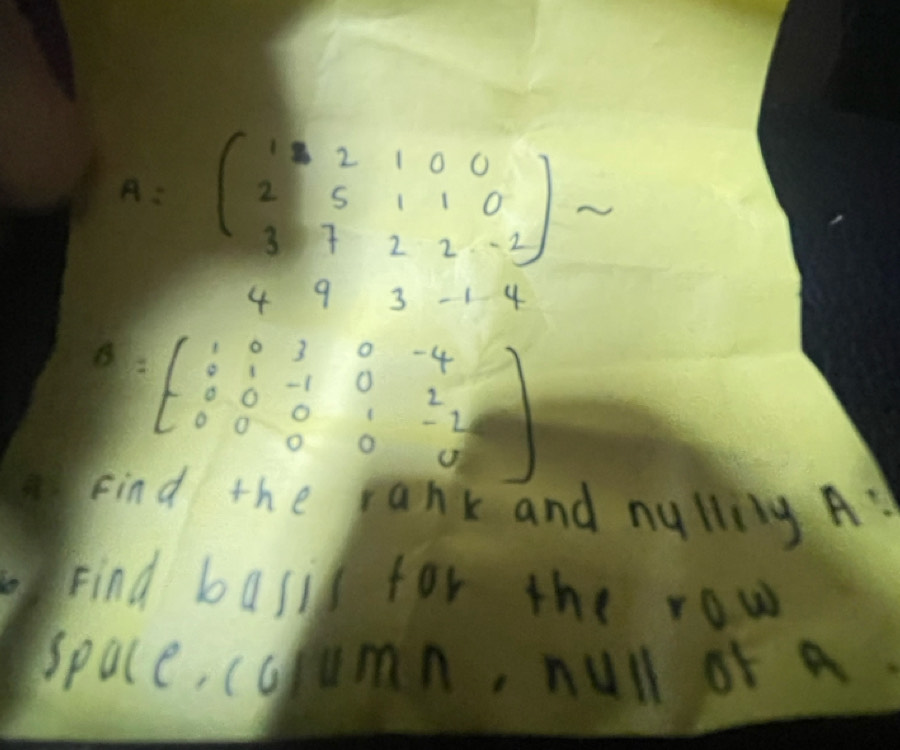 1 2 1 0 0
A = 2 5 1 1 0 ~
3 7 2 2 -2
4 9 3 -1 4
B = 1 0 3 0 -4
0 1 -1 0 2
0 0 0 1 -2
0 0 0 0 0
Find the rank and nullily A
Find basis for the row
space, column, null of A.